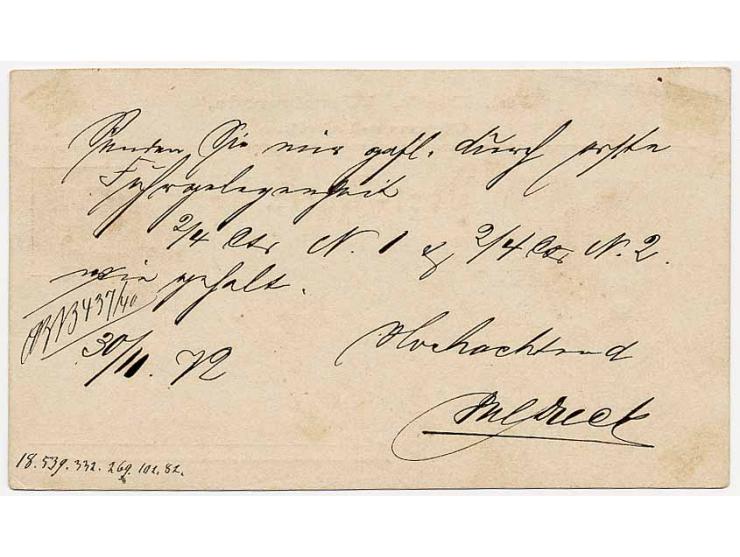 Senden Sie mir gefl. durch erste
Fuhrgelegenheit
2/4 Ctr N. 1 & 2/4 Ctr N. 2.
wie gehabt.
30/11. 72
Hochachtend
18.539.332.269.102.82.